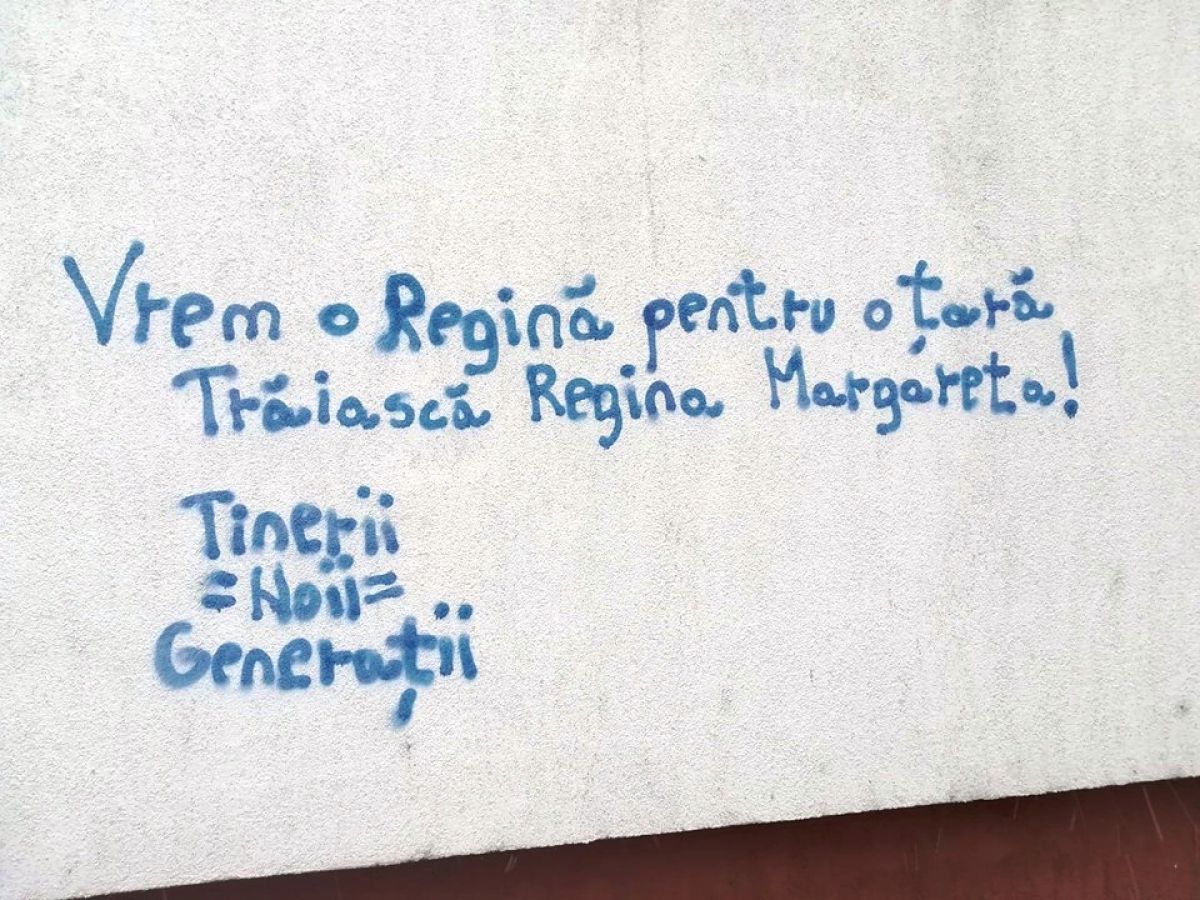 Vrem o Regină pentru o țară
Trăiască Regina Margareta!
Tinerii
=Noii=
Generații